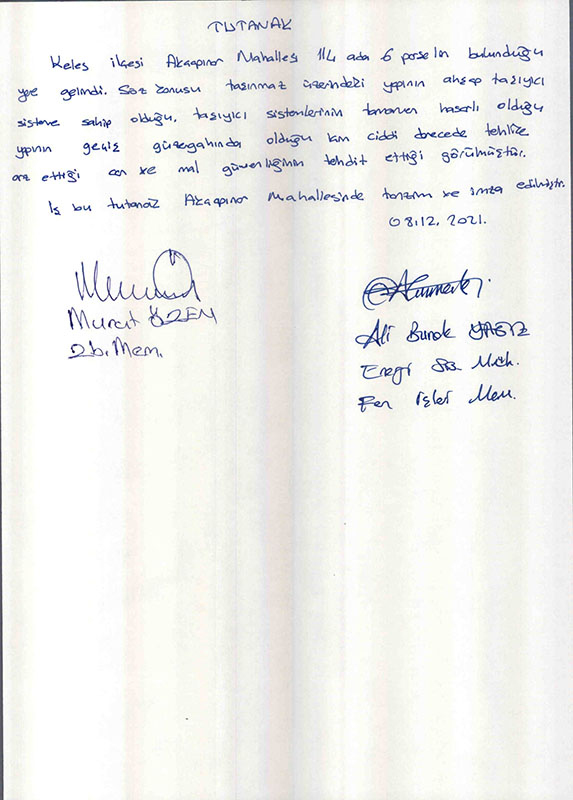 TUTANAK
Keles ilçesi Akçapınar Mahallesi 114 ada 6 parselin bulunduğu
yere gelindi. Söz konusu taşınmaz üzerindeki yapının ahşap taşıyıcı
sisteme sahip olduğu, taşıyıcı sistemlerinin tamamen hasarlı olduğu
yapının geçiş güzergahında olduğu ciddi derecede tehlike
arz ettiği can ve mal güvenliğinin tehdit ettiği görülmüştür.
İş bu tutanak Akçapınar Mahallesinde tanzim ve imza edilmiştir.
08.12.2021.
Murat ÖZEN
Zb. Mem.
Ali Burak YAĞIZ
Enerji Sis. Müh.
Fen işleri Mem.